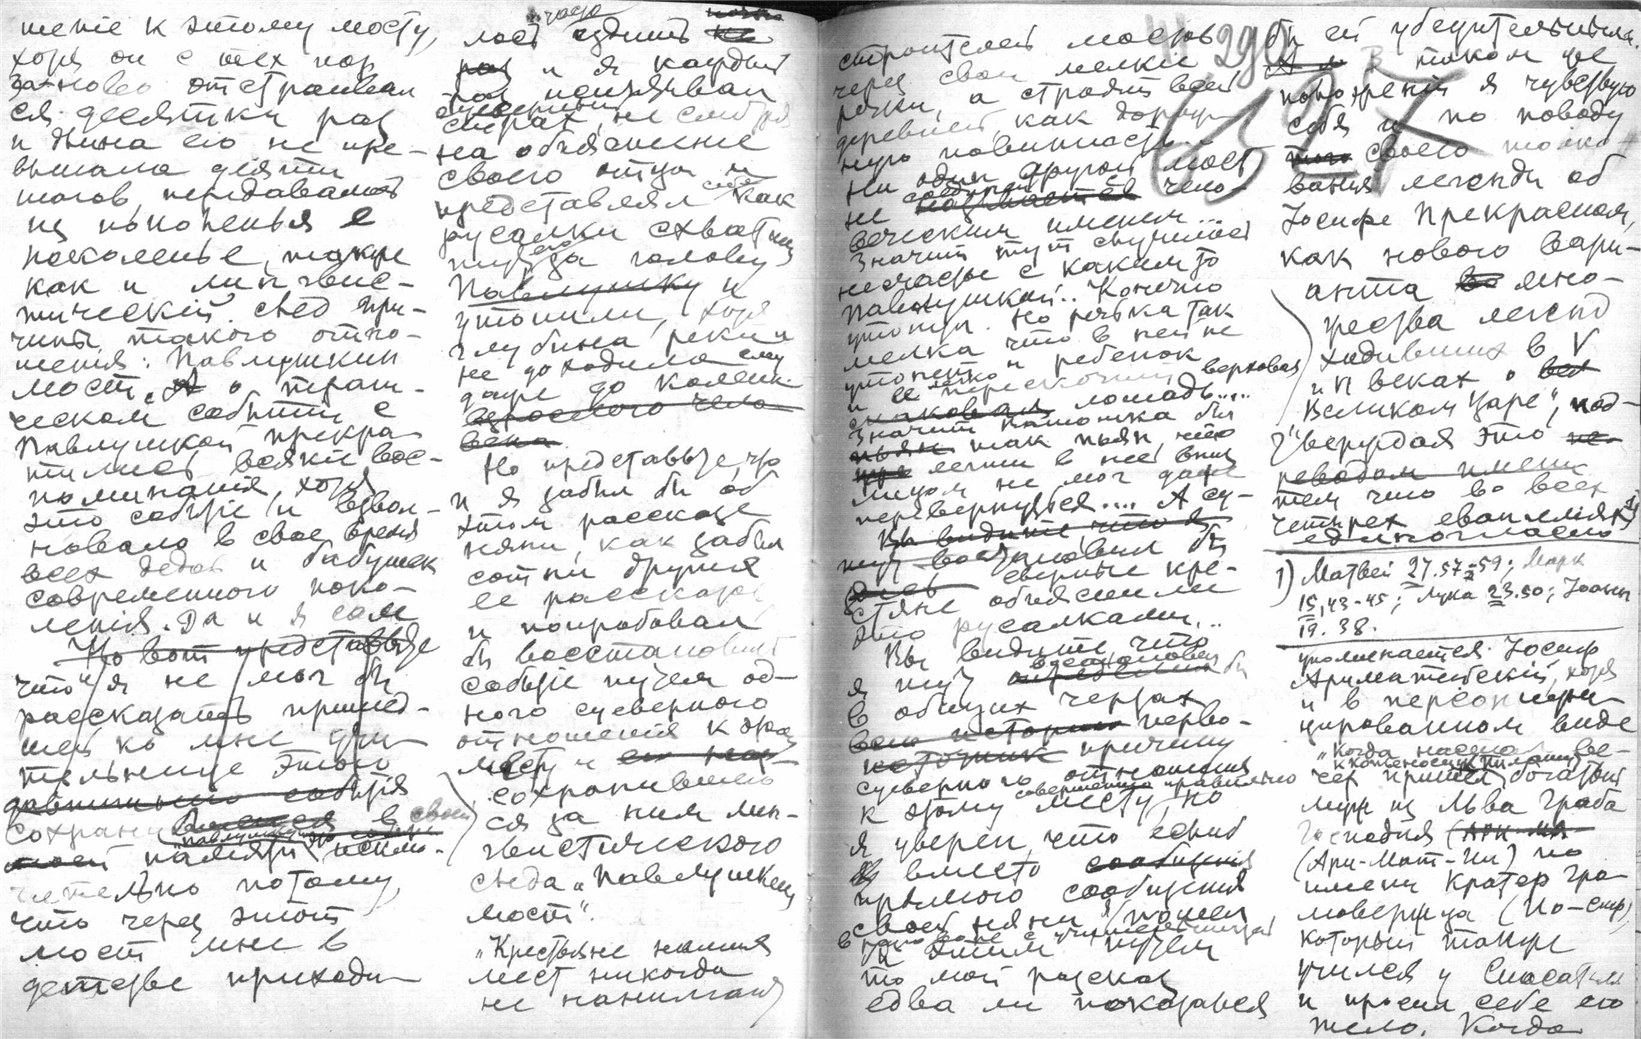 шеніе к этому мосту,
хотя он с тех пор
заново отстраивал
ся десятки раз
и длина его не пре-
вышала десяти
шагов, передавалось
из поколенья в
поколенье, также
как и лингвис-
тическій след при-
чины такого отно-
шенія: Павлушкин
мост. А о траги-
ческом событіи с
Павлушкой прекра-
тились всякіе вос-
поминанія, хотя
это событіе и взвол-
новало в свое время
всех дедов и бабушек
современного поко-
ленія. Да и я сам
Но вот представьте
что я не мог бы
рассказать пришед-
шей ко мне
этого
давнишнего событія
сохрани в своей
памяти исклю-
чительно потому,
что через этот
мост мне в
детстве приходи-
часто
лось ездить
раз и я каждый
раз испытывал
суеверный
страх, не смотря
на объясненіе
своего отца и
представлял себе как
русалки схватили
тут за голову
Павлушку и
утопили, хотя
глубина реки и
не доходила ему
даже до колен.
взрослого чело
века.
Но представьте, что
и я забыл бы об
этом рассказе
няни, как забыл
сотни других
ее рассказов
и попробовал
бы восстановить
событіе путем од-
ного суеверного
отношенія к этому
месту и
сохранившего
ся за ним лин-
гвистического
следа „Павлушкин
мост“.
„Крестьяне наших
мест никогда
не нанимают
строителей мостов
через свои мелкія
речки, а строят всей
деревней, как дорож-
ную повинность.
Ни один другой мост
не чело-
веческим именем...
Значит тут случилось
несчастье с каким то
Павлушкой.. Конечно
утонул. Но речка так
мелка что в ней не
утонет и ребенок
и ее легко перескочит верховая
лошадь....
Значит Павлушка был
пьян так пьян, что
легши в нее вниз
лицом не мог даже
перевернуться.... А су-
Вы видите что я
тут востановил бы
еверные кре-
стяне объяснили
это русалками...
Вы видите что
я тут востановил бы
в общих чертах
всю исторію перво-
источник причину
суеверного отношенія
к этому месту совершенно правильно но
я уверен, что еслиб
я вместо сообщенія
прямого сообщенія
своей няни, я пошел
в
этим путем
то мой рассказ
едва ли показался
290
617
бы ей убедительным.
В таком же
положеніи я чувствую
себя и по поводу
того своего толко-
ванія легенды об
Іосифе Прекрасном,
как нового вари-
анта мно-
жества легенд
ходивших в V
и IV веках о
„Великом Царе“, под-
тверждая это пе-
реводом имени
тем что во всех
четырех евангеліях 1)
единогласно
1) Матвей 27.57-59; Марк
15,43-45; Лука 23.50; Іоанн
19. 38.
упоминается Іосиф
Ариматейскій, хотя
и в персонифи-
цированном виде
„Когда настал ве-
чер пришел богатый
к Пилату
муж из Льва Граба
Господня (Ари-ма
(Ари-Мат-Ии) по
имени Кратер Гро
мовержца (Ио-сиф),
который также
учился у Спасителя
и просил себе его
тело. Когда